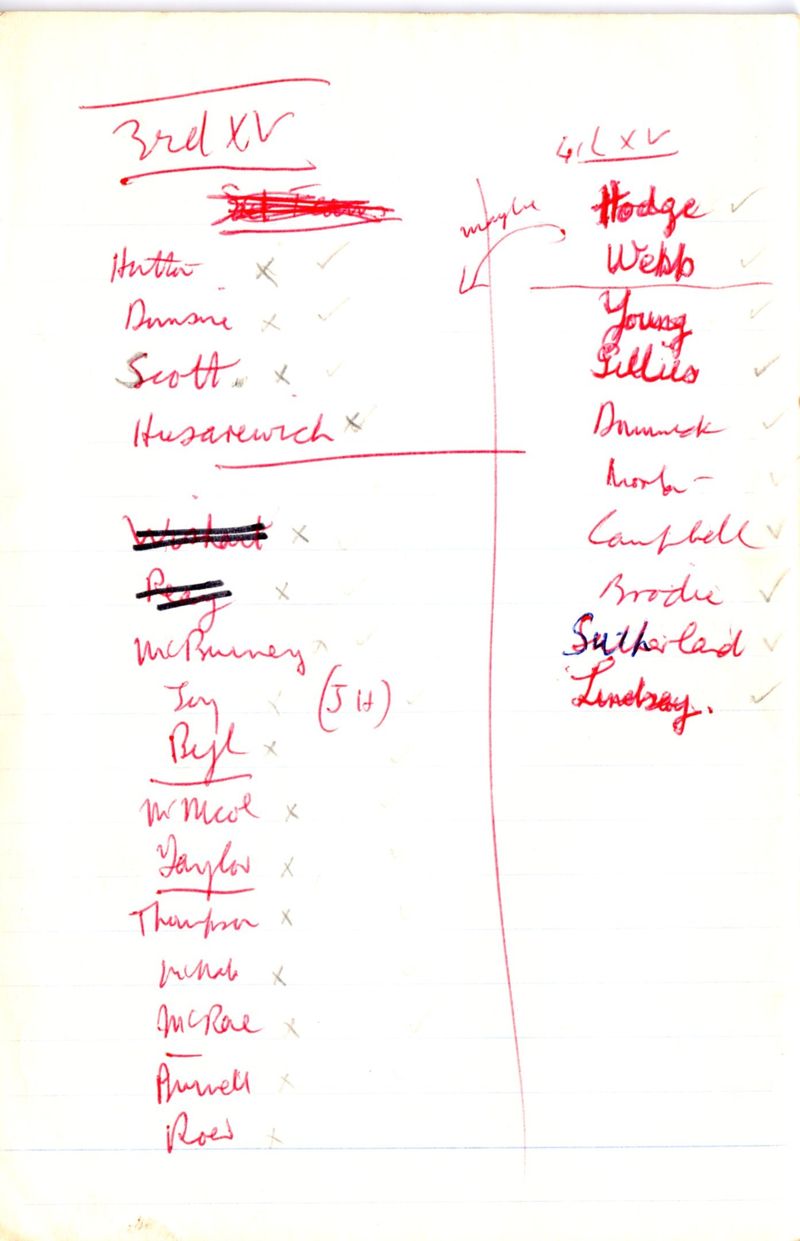 3rd XV
Hutton
Dunsire
Scott.
Husarewich
Wishart
Peay
McBurney
Joy (JH)
Bejl
McNicol
Taylor
Thompson
McNab
McRae
Purnell
4th XV
maybe
Hodge
Webb
Young
Gillies
Dominick
Morton
Campbell
Brodie
Sutherland
Lindsay.